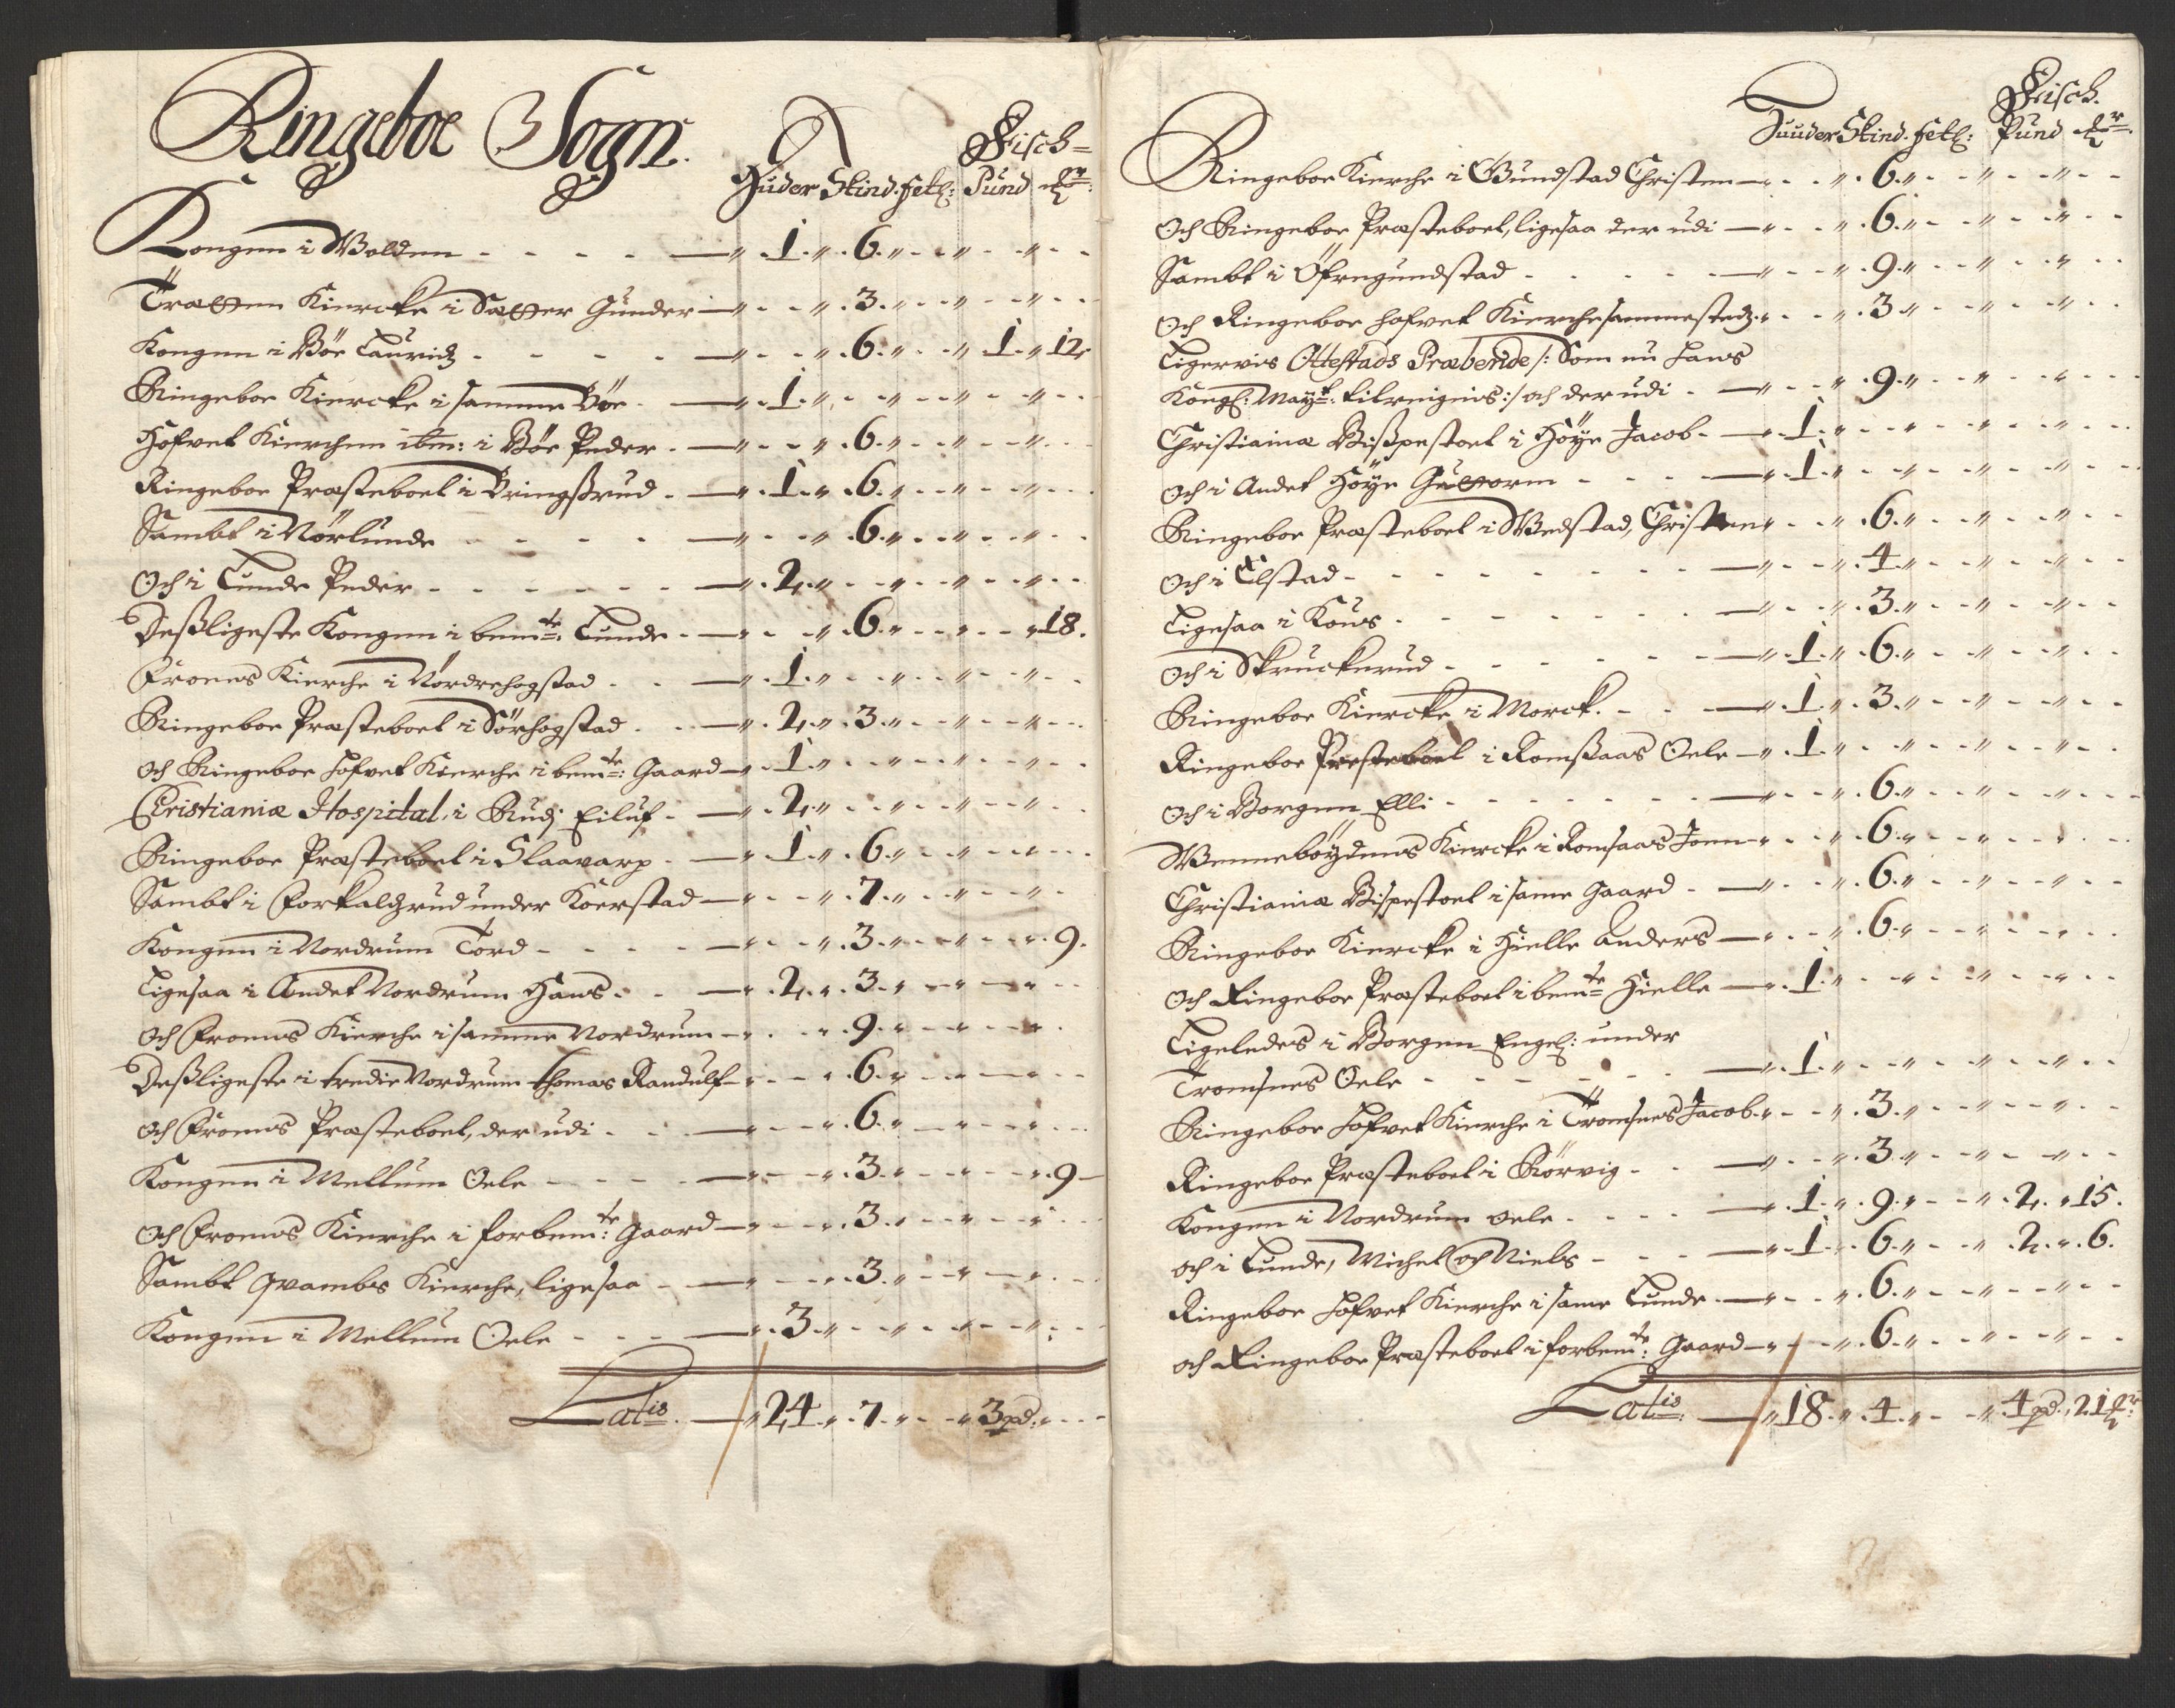 Ringeboe Sogn.
Fisch=
Huder Skind. Fetl: Pund mr:
Kongen i Wolden - - - - 1. 6.
Trætten Kiercke i Sætter Gunder 3.
Kongen i Böe Lauridz - - - - 6. 1. 12.
Ringeboe Kiercke i samme Böe - 1.
Hofvet Kierchen ibm: i Böe Peder - 6.
Ringeboe Præsteboel i Bringßrud - 1. 6.
Sambt i Nörlunde - - - - 6.
Och i Lunde Peder - - - - - 2.
Deßligeste Kongen i bemte: Lunde - 6. 18.
Froens Kierche i Nördrehogstad - - 1.
Ringeboe Præsteboel i Sörhogstad - - 2. 3.
och Ringeboe Hofvet Kierche i bemte: Gaard 1.
Christianiæ Hospital, i Rudj Eiluf - 2.
Ringeboe Præsteboel i Slaavarp - 1. 6.
Sambt i Forkalgrud under Kierstad 7.
Kongen i Nordrum Tord - - - - 3. 9.
Ligesaa i Andet Nordrum Hans - - 2. 3.
Och Froens Kierche i samme Nordrum - 9.
Deßligeste i tredie Nordrum Thomas Randulf 6.
och Froens Præsteboel, der udi - - - 6.
Kongen i Mellum Oele - - - - 3. 9
Och Froens Kierche i forbemte: Gaard 3.
Sambt Qvambs Kierche, ligesaa - - 3.
Kongen i Mellum Oele - - - 3.
Latis. 24. 7. 3 pd.
Fisch.
Huuder Skind. Fetl: Pund mr:
Ringeboe Kierche i Gundstad Christen 6.
Och Ringeboe Præsteboel, ligesaa der udi 6.
Sambt i Öfregundstad - - - - 9.
Och Ringeboe Hofvet Kierche sammestedz. 3
Ligervis Ottestads Præbende /: Som nu Hans
Kongl: Mayt: tilreignis :/ och der udi - 9.
Christianiæ Bißpestoel i Höye Jacob - 1.
och i Andet Höye Guttorm - - - 1.
Ringeboe Præsteboel i Wedstad, Christen 6.
och i Elstad - - - - - - - 4.
Ligesaa i Kouß - - - - - - 3.
och i Skruckerud - - - - - 1. 6.
Ringeboe Kiercke i Morck. - - - 1. 3.
Ringeboe Presteboel i Romßaas Oele 1.
och i Borgen Elli - - - - - - 6.
Wennebøydens Kiercke i Romsaas Joen 6.
Christianiæ Bispestoel i same Gaard - 6.
Ringeboe Kiercke i Hielle Anders 6.
och Ringeboe Præsteboel i bemte Hielle 1.
Ligeledes i Borgen Engel: under
Tromsnes Oele - - - - - 1.
Ringeboe Hofvet Kierche i Tromsnes Jacob. 3.
Ringeboe Præsteboel i Körvig - - 3.
Kongen i Nordrum Oele - - - - 1. 9. 2. 15.
och i Lunde, Michel och Niels - - - 1. 6. 2. 6.
Ringeboe Hofvet Kierche i same Lunde 6.
och Ringeboe Præsteboel i forbemte: Gaard 6.
Latis: 18. 4. 4 pd. 21 mr: